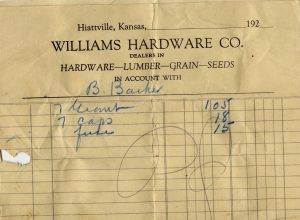 Hiattville, Kansas, 192
WILLIAMS HARDWARE CO.
DEALERS IN
HARDWARE—LUMBER—GRAIN—SEEDS
IN ACCOUNT WITH
B Barker
7 1.05
7 caps 18
fuse 15